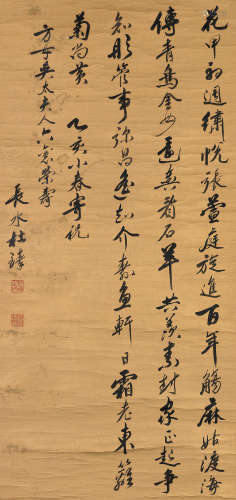 花甲初週繡帨張萱庭旋進百年觴麻姑渡海
傳青鳥金母真看石羊共羨素封家正起爭
知彤管事彌昌遙知介壽魚軒日霜老東籬
菊尚黃 乙亥小春寄祝
方母吳太夫人六袠榮壽
長水杜臻